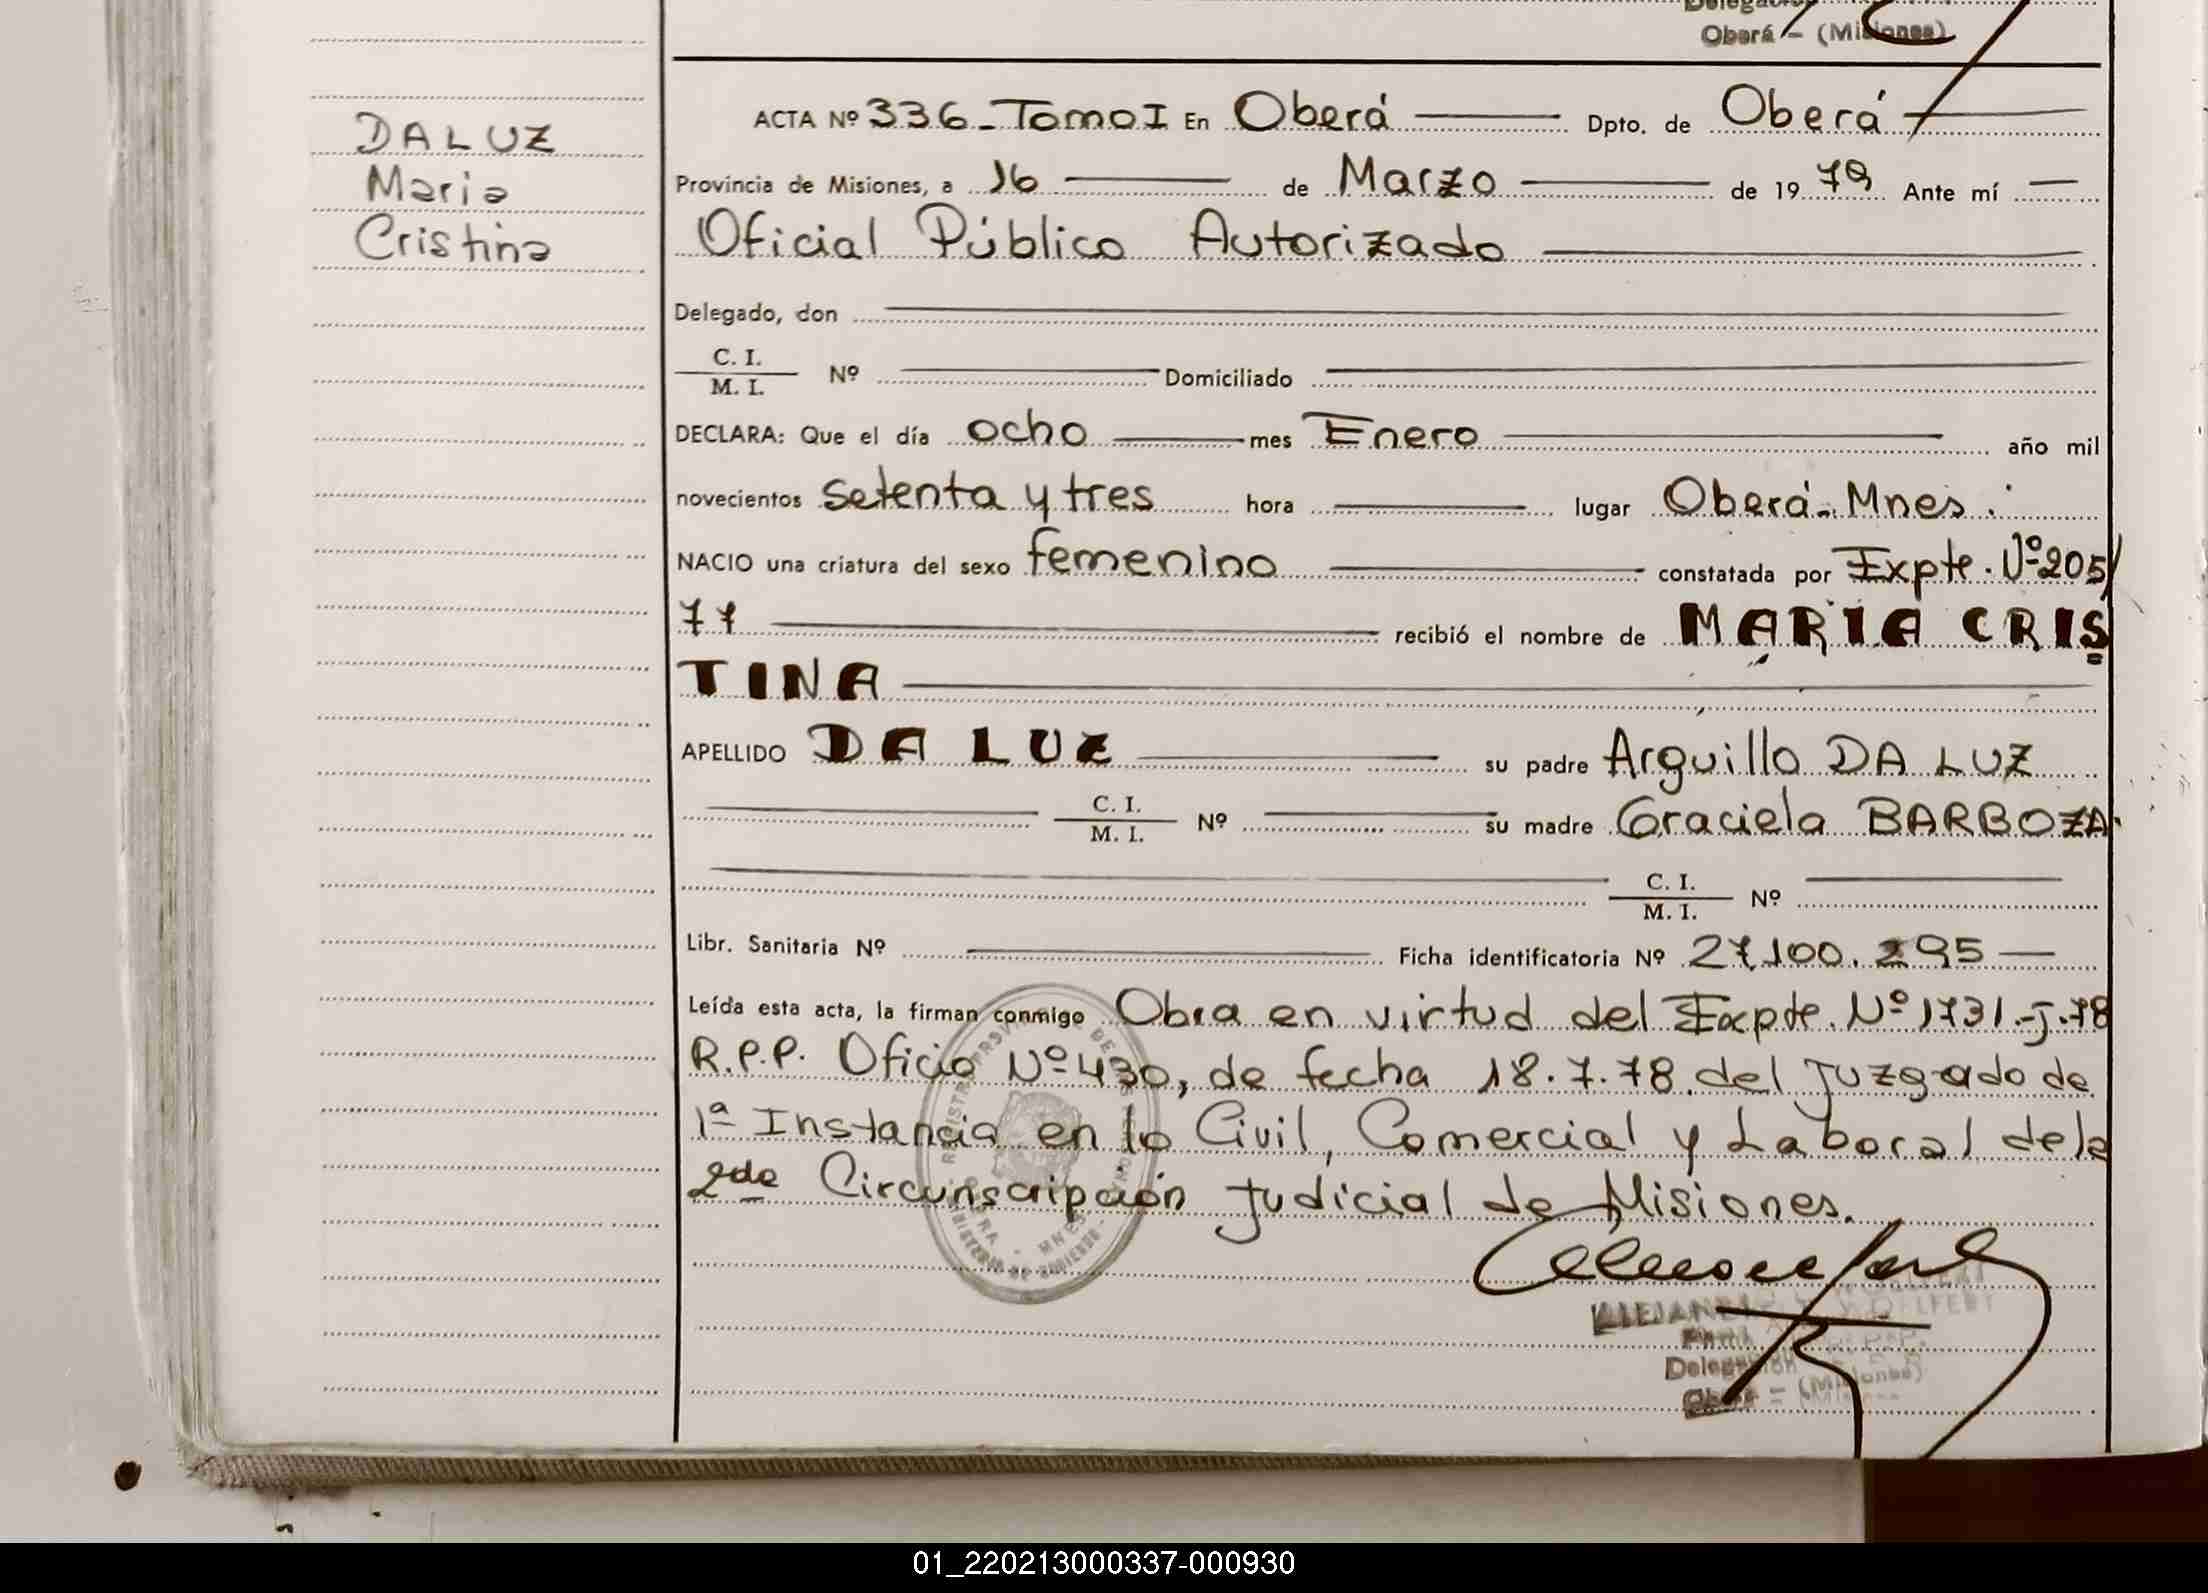 Oberá - (Misiones)
DA LUZ
Maria
Cristina
ACTA Nº 336 - Tomo I En Oberá Dpto. de Oberá
Provincia de Misiones, a 16 de Marzo de 1979 Ante mí
Oficial Público Autorizado
Delegado, don
C. I.
M. I. Nº Domiciliado
DECLARA: Que el día ocho mes Enero año mil
novecientos setenta y tres hora lugar Oberá - Mnes.
NACIO una criatura del sexo femenino constatada por Expte. Nº 205/
77 recibió el nombre de MARIA CRIS
TINA
APELLIDO DA LUZ su padre Arguillo DA LUZ
C. I.
M. I. Nº su madre Graciela BARBOZA.
C. I.
M. I. Nº
Libr. Sanitaria Nº Ficha identificatoria Nº 27.100.295
Leída esta acta, la firman conmigo Obra en virtud del Expte. Nº 1731.-J.78
R.P.P. Oficio Nº 430, de fecha 18.7.78 del Juzgado de
1ª Instancia en lo Civil, Comercial y Laboral de la
2da Circunscripción Judicial de Misiones.
Delegación
Oberá - (Misiones)
01_220213000337-000930